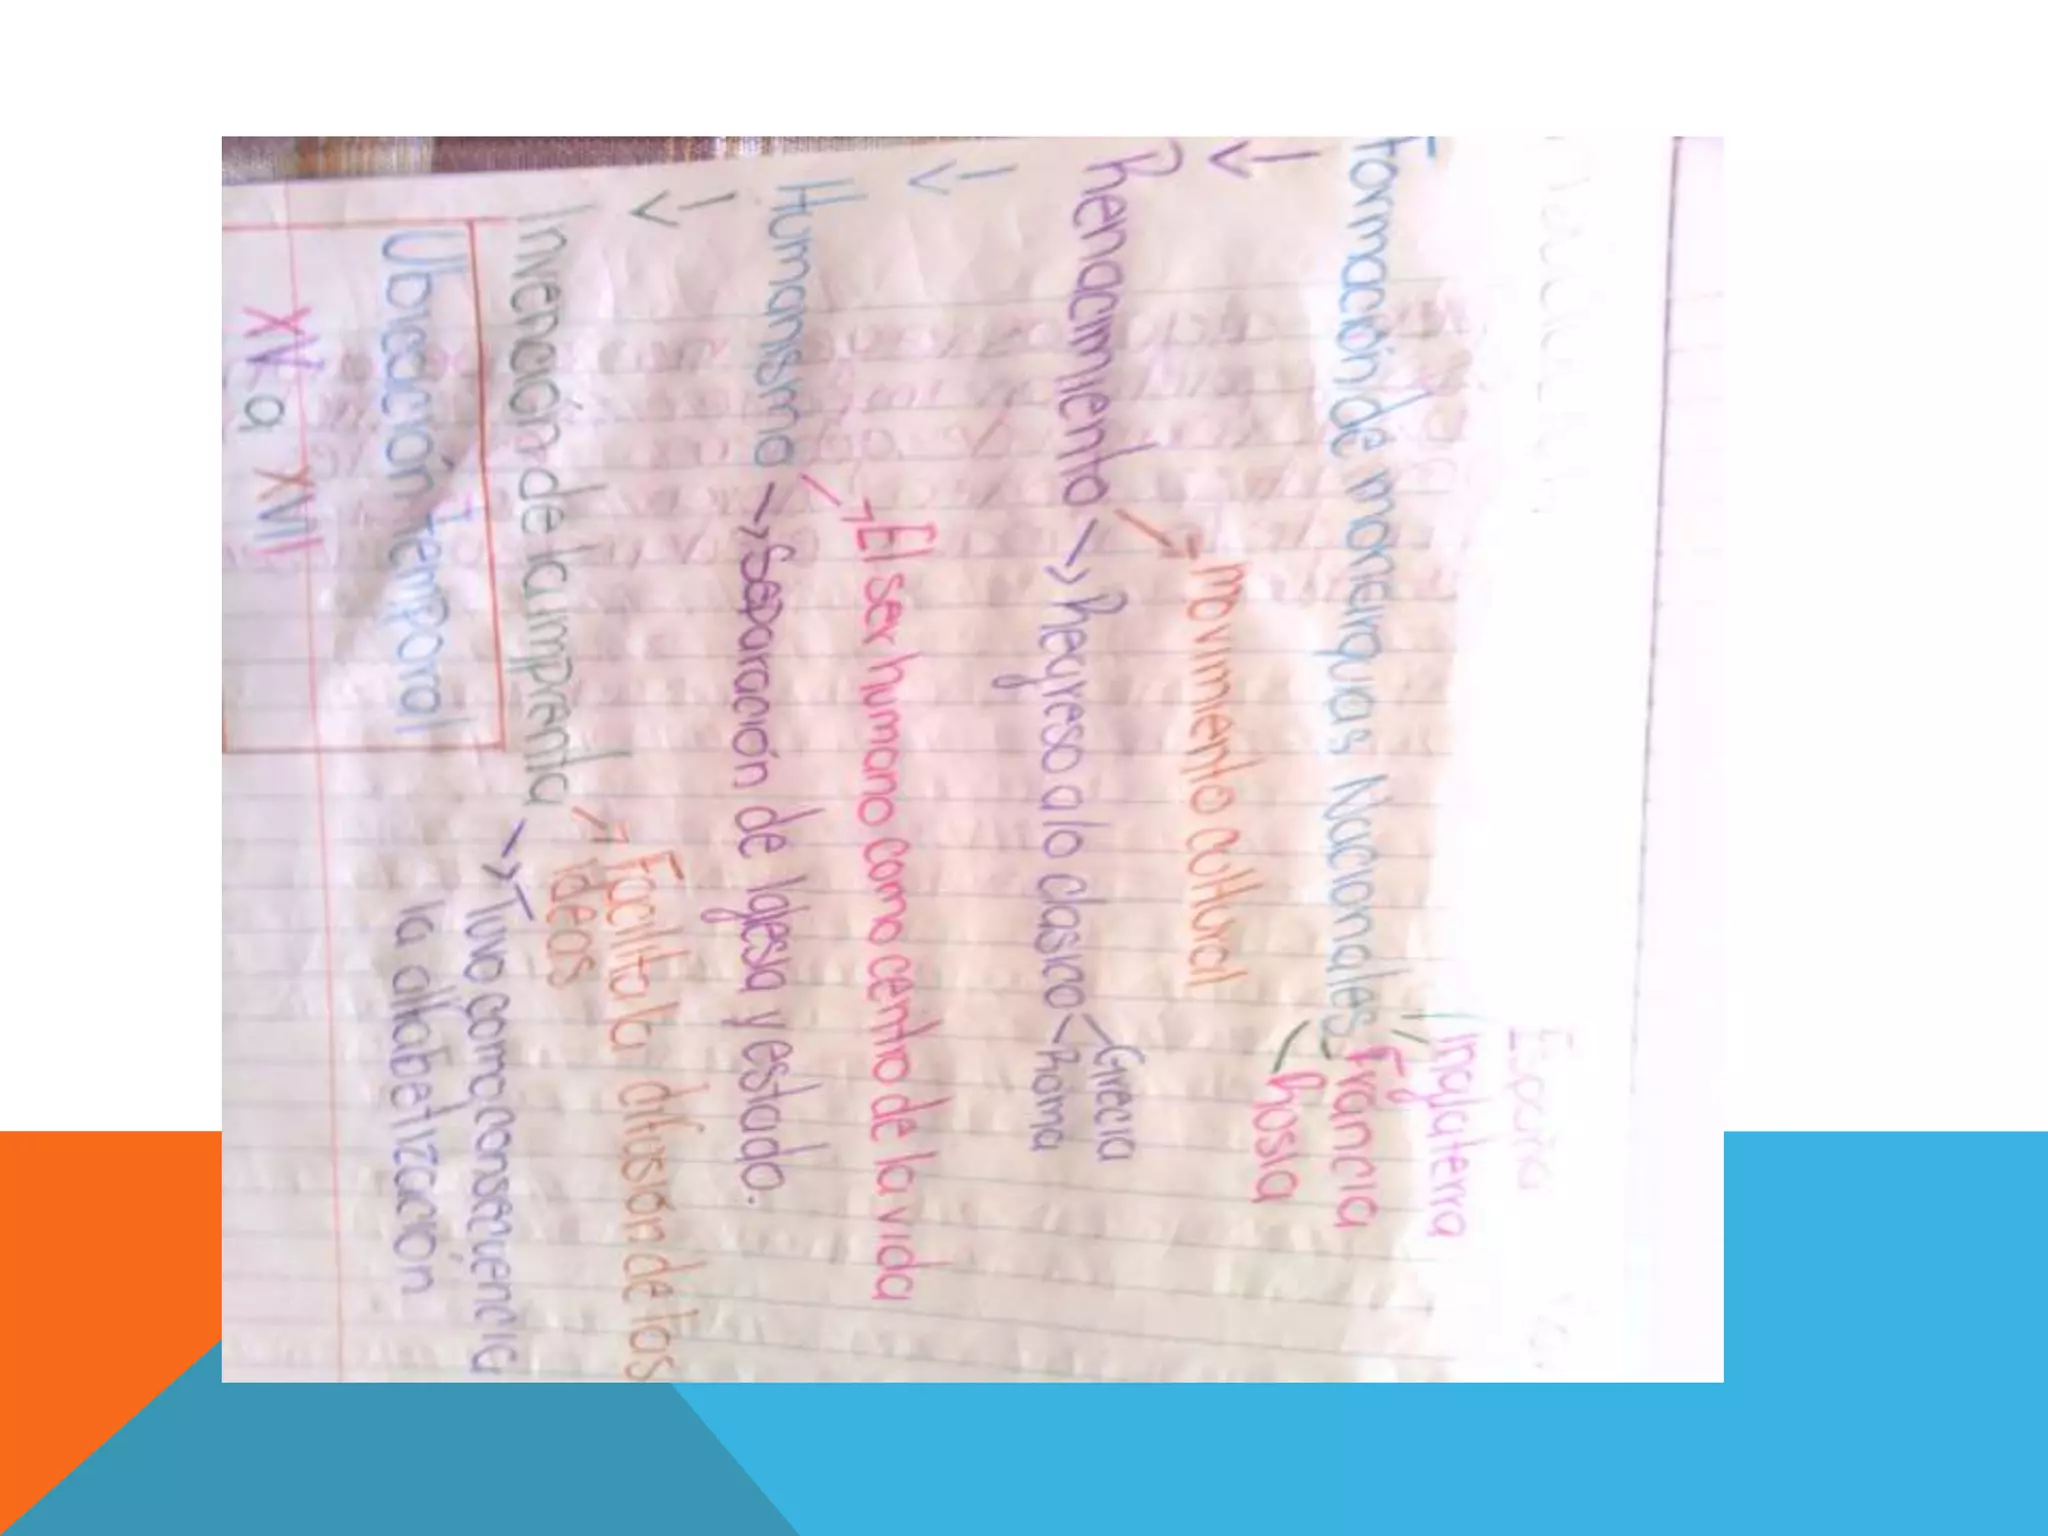 España
Inglaterra
Formación de monarquias Nacionales Francia
Rosia
movimiento cultural
Renacimiento Regreso a lo clasico Grecia
Roma
El ser humano como centro de la vida
Humanismo Separación de Iglesia y estado.
Facilito la difusión de los
ideas
Invención de la imprenta Tuvo como consecuencia
la alfabetización
Ubicación temporal
XV a XVII